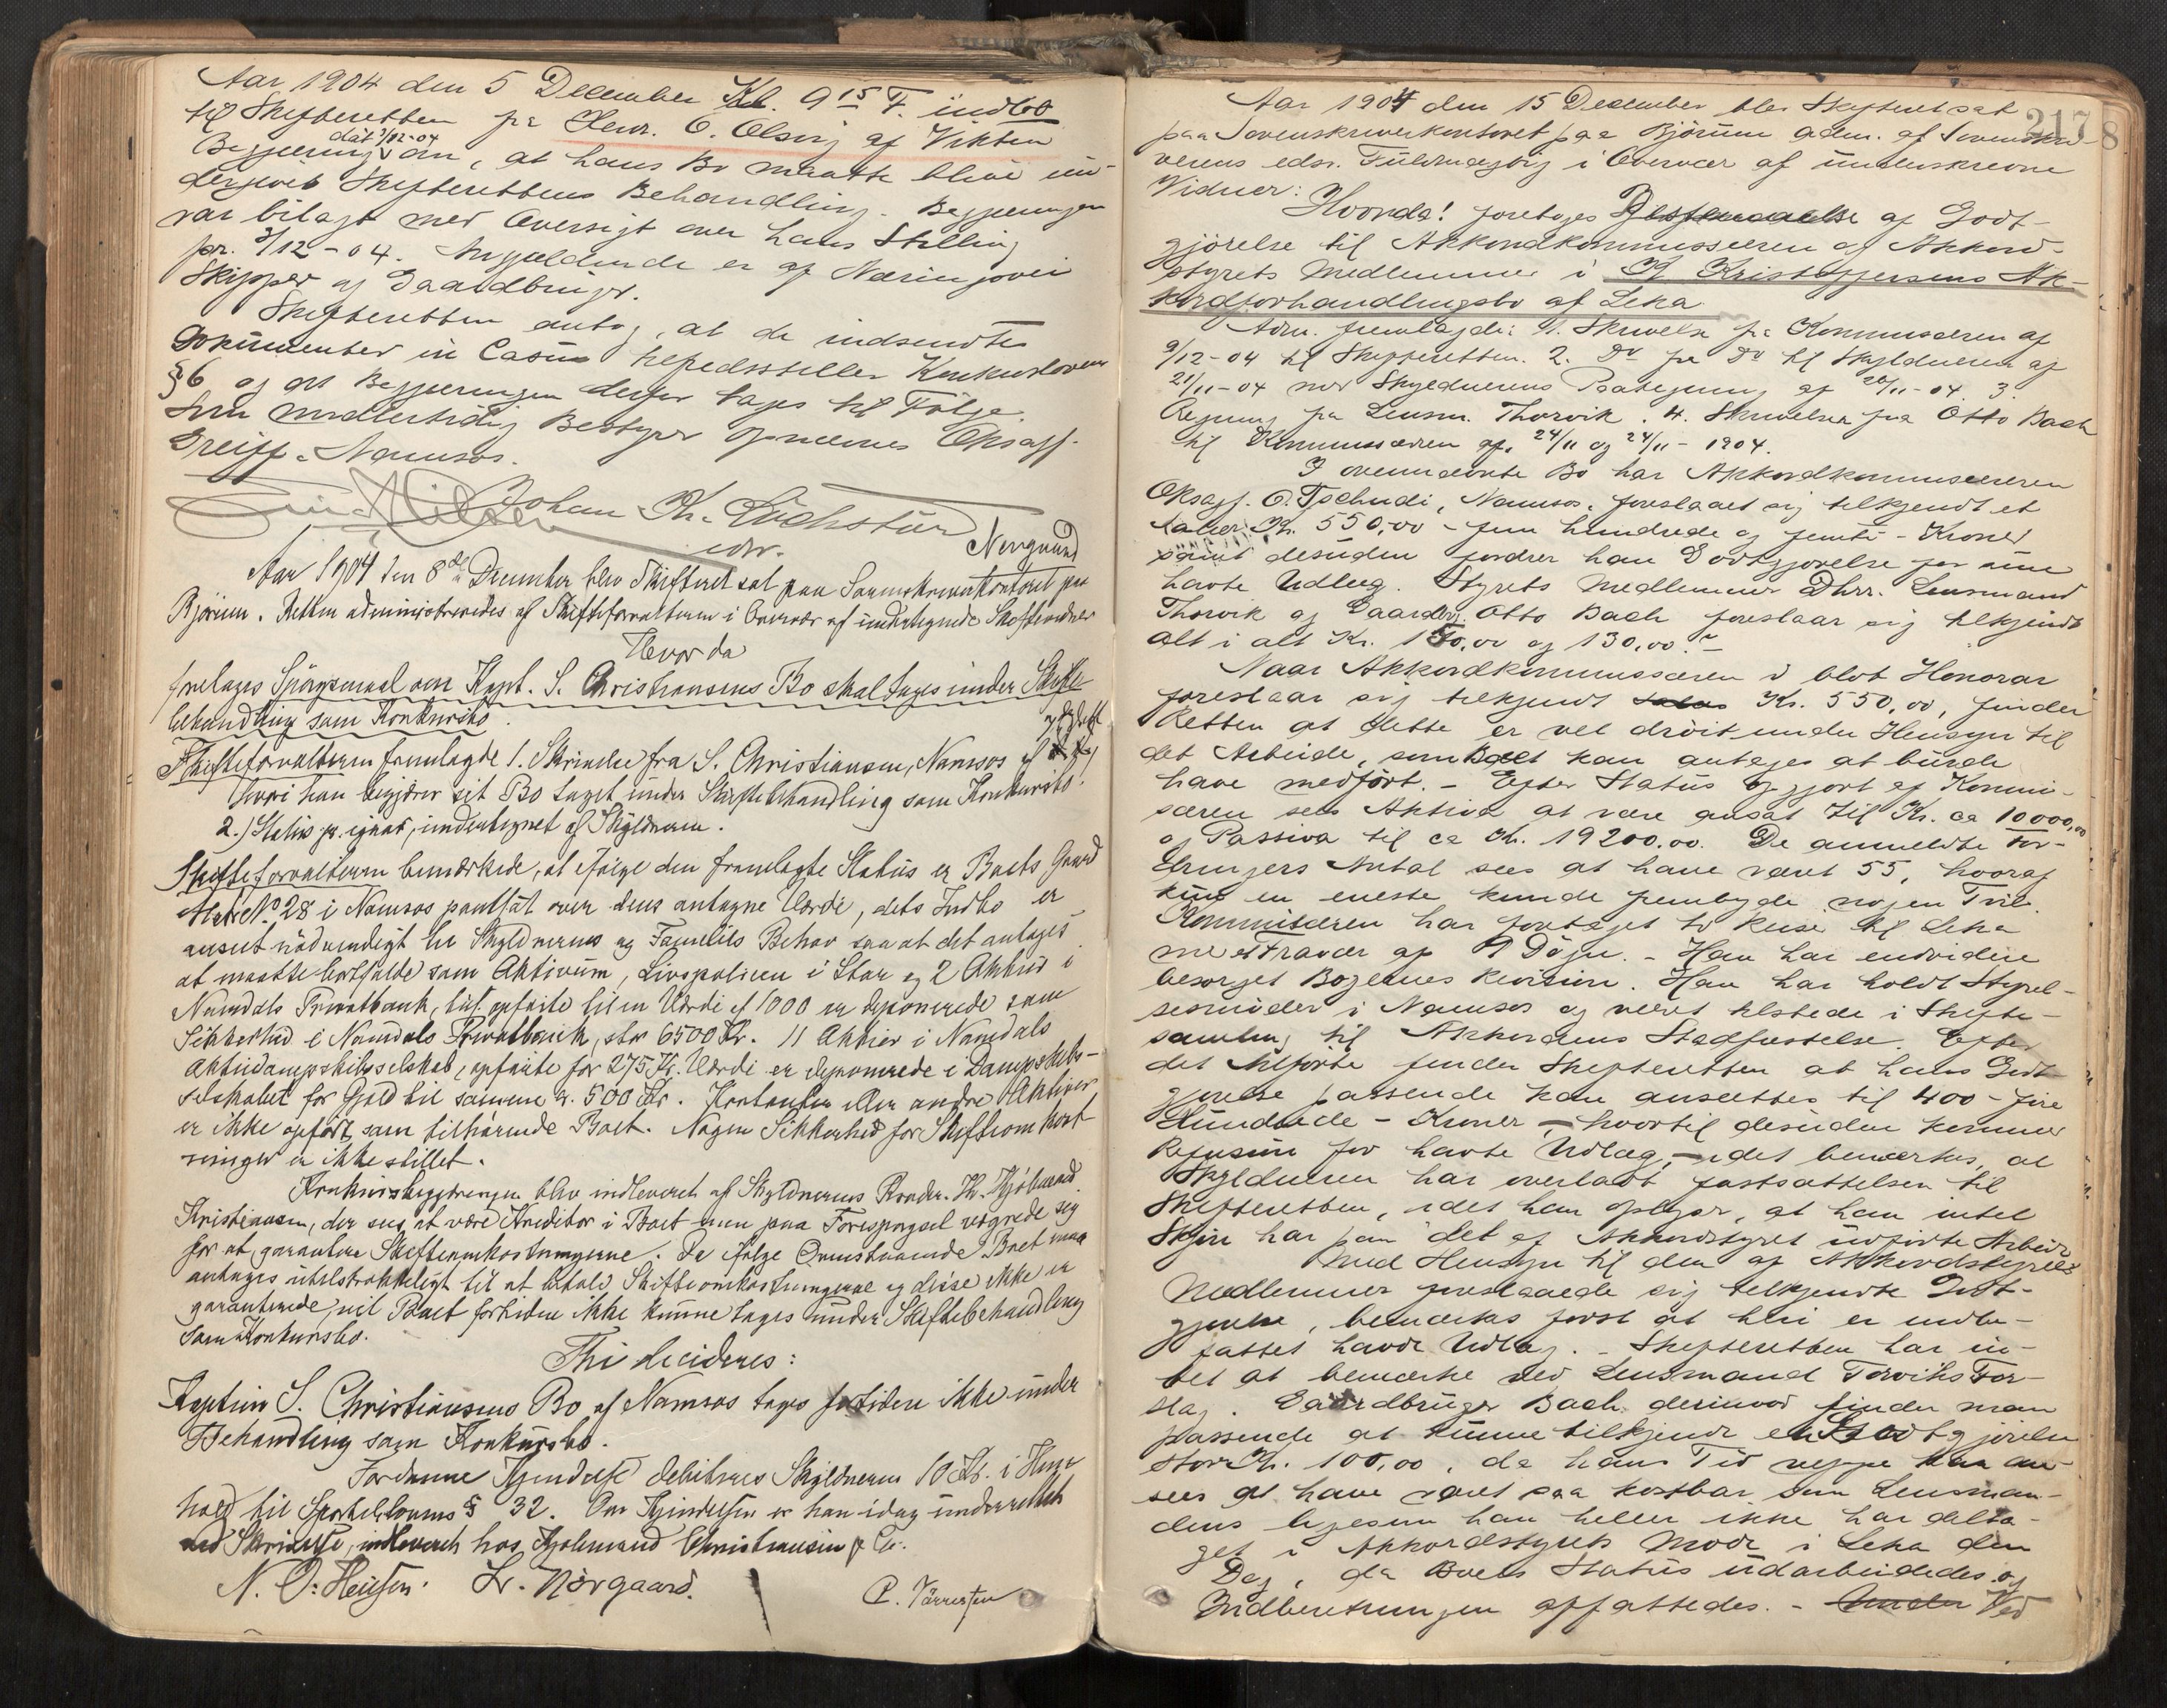 Aar 1904 den 5 December Kl. 9 15 F. indkob
til Skifteretten fra Henr. O. Olsvig af Vikten
dat 3/12-04
Begjæring om, at hans Bo maatte blive un-
dergivet Skifterettens Behandling. Begjæringen
var bilagt med Oversigt over hans Stilling
pr. 3/12-04. Angjældende er af Næringsvei
Skipper og Gaardbruger.
Skifteretten antog, at de indsendte
Dokumenter in Casu tilfredsstiller Konkursloven
§ 6 og at Begjæringen derfor tages til Følge.
Som midlertidig Bestyrer opnævnes Oksagf.
Greiff, Namsos.
Johan Kr.
edsv.
Norgaard
Aar 1904 den 8de December blev Skifteret sat paa Sorenskriverkontoret paa
Bjørum. Retten administreredes af Skifteforvalteren i Overvær af undertegnede Skiftevidner
Hvorda
foretages Spørgsmaal om Kapt. S. Christiansens Bo skal tages under Skifte-
behandling som Konkursbo.
Skifteforvalteren fremlagde 1. Skrivelse fra S. Christiansen, Namsos af
hvori han begjærer sit Bo taget under Skiftebehandling som Konkursbo.
2.) Status pr. igaar, undertegnet af Skyldneren.
Skifteforvalteren bemærkede, at ifølge den fremlagte Status er Boets Gaard
Matr. No 28 i Namsos pantsat over dens antagne Værdi, dets Indbo er
anseet nødvendigt for Skyldnerens og Families Behov saa at det antages
at maatte bortfalde som Aktivum, Livspolicen i Star og 2 Aktier i
Namdals Privatbank, tils. opførte til en Værdi af 1000 er deponerede som
Sikkerhed i Namdals Privatbank, stor 6500 Kr. 11 Aktier i Namdals
Aktiedampskibsselskab, opførte for 275 Kr. Værdi er deponerede i Dampskibs-
selskabet for Gjæld til samme kr. 500 Kr. Kontanter eller andre Aktiver
er ikke opført som tilhørende Boet. Nogen Sikkerhed for Skifteomkost-
ninger er ikke stillet.
Konkursbegjæringen blev indleveret af Skyldnerens Broder Kr. Hjelmand
Kristiansen, der sees at være Kreditor i Boet men paa Forespørgsel vægrede sig
for at garantere Skifteomkostningerne. Da ifølge Ovenstaaende Boet maa
antages utilstrækkeligt til at betale Skifteomkostningerne og disse ikke er
garanterede, vil Boet fortiden ikke kunne tages under Skiftebehandling
som Konkursbo.
Thi decideres:
Kaptein S. Christiansens Bo af Namsos tages fortiden ikke under
Behandling som Konkursbo.
For denne Kjendelse debiteres Skyldneren 10 Kr. i Hen-
hold til Sportellovens § 32. Om Kjendelsen er han idag underrettet
ved Skrivelse, indleveret hos Hjelmand Christiansen & Co.
N. O. Heilsen. Lr. Nørgaard. P. Tørressen
217 8
Aar 1904 den 15 December blev Skifteret sat
paa Sorenskriverkontoret paa Bjørum adm. af Sorenskri-
verens edsv. Fuldmægtig i Overvær af underskrevne
Vidner:
Hvorda! foretages Bestemmelse af Godt-
gjørelse til Akkordkommissæren og Akkord-
styrets Medlemmer i K Kristoffersens Ak-
kordforhandlingsbo af Leka
Adm. fremlagde: 1. Skrivelse fra Kommissæren af
9/12-04 til Skifteretten. 2. Do fra Do til Skyldneren af
21/11-04 med Skyldnerens Paategning af 28/11-04. 3.
Regning fra Lensm. Thorvik. 4. Skrivelser fra Otto Bach
til Kommissæren af 24/11 og 24/11-1904.
I ovennævnte Bo har Akkordkommissæren
Oksagf. O. Tschudi, Namsos, foreslaaet sig tilkjendt et
Salær Kr. 550,00 - fem hundrede og femti - Kroner
samt desuden fordrer han Godtgjørelse for sine
havte Udlæg. Styrets Medlemmer Dhrr. Lensmand
Thorvik og Gaardbr. Otto Bach foreslaar sig tilkjendt
alt i alt Kr. 150,00 og 130,00.
Naar Akkordkommissæren i blot Honorar
foreslaar sig tilkjendt Kr. 550,00, finder
Retten at dette er vel drøit under Hensyn til
det Arbeide, som Boet kan antages at burde
have medført. - Efter Status opgjort af Kommis-
særen sees Aktiva at være ansat til Kr. ca 10000,00
og Passiva til ca Kr. 19200.00. De anmeldte For-
dringers Antal sees at have været 55, hvoraf
kun en eneste kunde frembyde nogen Tvil.
Kommissæren har foretaget to Reiser til Leka
med Fravær af 9 Døgn. - Han har endvidere
besørget Bøgernes Revision. Han har holdt Styrel-
sesmøder i Namsos og været tilstede i Skifte-
samling til Akkordens Stadfæstelse. Efter
det Anførte finder Skifteretten at hans Godt-
gjørelse passende kan ansættes til 400 - fire
Hundrede - Kroner, - hvortil desuden kommer
Refusion for havte Udlæg, - idet bemærkes, at
Skyldneren har overladt fastsættelsen til
Skifteretten, idet han oplyser, at han intet
Skjøn har paa det af Akkordstyret udførte Arbeide.
Med Hensyn til den af Akkordstyrets
Medlemmer foreslaaede sig tilkjendte Godt-
gjørelse, bemærkes først at heri er indbe-
fattet havde Udlæg. - Skifteretten har in-
tet at bemærke ved Lensmand Torviks For-
slag. Gaardbruger Bach derimod finder man
passende at kunne tilkjende en Godtgjørelse
stor Kr. 100,00, da hans Tid neppe kan an-
sees at have været saa kostbar som Lensman-
dens ligesom han heller ikke har delta-
get i Akkordstyrets Møde i Leka den
Dag, da Boets Status udarbeidedes og
Indberetningen affattedes. - Under Ved